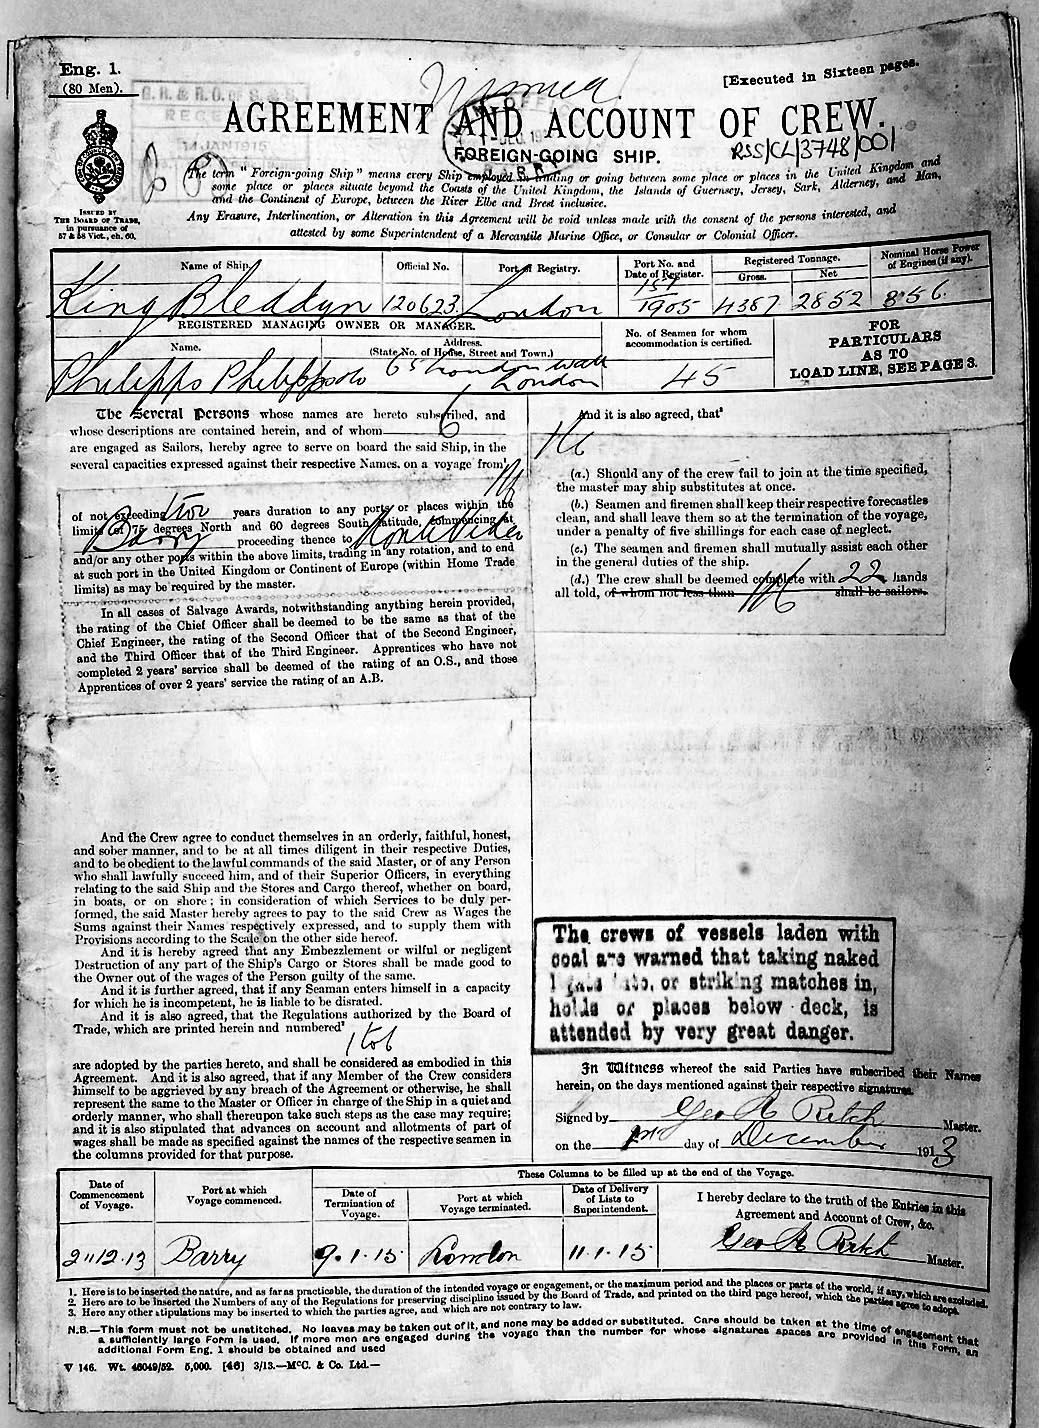 Eng. 1.
(80 Men).
[Executed in Sixteen pages.
AGREEMENT AND ACCOUNT OF CREW.
FOREIGN-GOING SHIP.
RSS/CL/3748/001
14 JAN 1915
ISSUED BY
THE BOARD OF TRADE,
in pursuance of
57 & 58 Vict., ch. 60.
The term "Foreign-going Ship" means every Ship employed in trading or going between some place or places in the United Kingdom and
some place or places situate beyond the Coasts of the United Kingdom, the Islands of Guernsey, Jersey, Sark, Alderney, and Man,
and the Continent of Europe, between the River Elbe and Brest inclusive.
Any Erasure, Interlineation, or Alteration in this Agreement will be void unless made with the consent of the persons interested, and
attested by some Superintendent of a Mercantile Marine Office, or Consular or Colonial Officer.
Name of Ship. Official No. Port of Registry. Port No. and Date of Register. Registered Tonnage. Gross. Net Nominal Horse Power of Engines (if any).
King Bleddyn 120623 London 157/1905 4387 2852 856.
REGISTERED MANAGING OWNER OR MANAGER.
Name. Address. (State No. of House, Street and Town.)
No. of Seamen for whom accommodation is certified.
FOR PARTICULARS AS TO LOAD LINE, SEE PAGE 3.
Philipps Philipps & Co 65 London Wall London 45
The Several Persons whose names are hereto subscribed, and
whose descriptions are contained herein, and of whom 6
are engaged as Sailors, hereby agree to serve on board the said Ship, in the
several capacities expressed against their respective Names, on a voyage from¹
of not exceeding two years duration to any ports or places within the
limits of 75 degrees North and 60 degrees South latitude, commencing at
Barry proceeding thence to Monte Video
and/or any other ports within the above limits, trading in any rotation, and to end
at such port in the United Kingdom or Continent of Europe (within Home Trade
limits) as may be required by the master.
In all cases of Salvage Awards, notwithstanding anything herein provided,
the rating of the Chief Officer shall be deemed to be the same as that of the
Chief Engineer, the rating of the Second Officer that of the Second Engineer,
and the Third Officer that of the Third Engineer. Apprentices who have not
completed 2 years' service shall be deemed of the rating of an O.S., and those
Apprentices of over 2 years' service the rating of an A.B.
And the Crew agree to conduct themselves in an orderly, faithful, honest,
and sober manner, and to be at all times diligent in their respective Duties,
and to be obedient to the lawful commands of the said Master, or of any Person
who shall lawfully succeed him, and of their Superior Officers, in everything
relating to the said Ship and the Stores and Cargo thereof, whether on board,
in boats, or on shore; in consideration of which Services to be duly per-
formed, the said Master hereby agrees to pay to the said Crew as Wages the
Sums against their Names respectively expressed, and to supply them with
Provisions according to the Scale on the other side hereof.
And it is hereby agreed that any Embezzlement or wilful or negligent
Destruction of any part of the Ship's Cargo or Stores shall be made good to
the Owner out of the wages of the Person guilty of the same.
And it is further agreed, that if any Seaman enters himself in a capacity
for which he is incompetent, he is liable to be disrated.
And it is also agreed, that the Regulations authorized by the Board of
Trade, which are printed herein and numbered²
1 to 6
are adopted by the parties hereto, and shall be considered as embodied in this
Agreement. And it is also agreed, that if any Member of the Crew considers
himself to be aggrieved by any breach of the Agreement or otherwise, he shall
represent the same to the Master or Officer in charge of the Ship in a quiet and
orderly manner, who shall thereupon take such steps as the case may require;
and it is also stipulated that advances on account and allotments of part of
wages shall be made as specified against the names of the respective seamen in
the columns provided for that purpose.
And it is also agreed, that³
(a.) Should any of the crew fail to join at the time specified,
the master may ship substitutes at once.
(b.) Seamen and firemen shall keep their respective forecastles
clean, and shall leave them so at the termination of the voyage,
under a penalty of five shillings for each case of neglect.
(c.) The seamen and firemen shall mutually assist each other
in the general duties of the ship.
(d.) The crew shall be deemed complete with 22 hands
all told, of whom not less than shall be sailors.
The crews of vessels laden with
coal are warned that taking naked
lights into, or striking matches in,
holds or places below deck, is
attended by very great danger.
In Witness whereof the said Parties have subscribed their Names
herein, on the days mentioned against their respective signatures.
Signed by Geo R Ritch Master.
on the 1st day of December 1913
These Columns to be filled up at the end of the Voyage.
Date of Commencement of Voyage. Port at which Voyage commenced. Date of Termination of Voyage. Port at which Voyage terminated. Date of Delivery of Lists to Superintendent.
I hereby declare to the truth of the Entries in this
Agreement and Account of Crew, &c.
2.12.13 Barry 9.1.15 London 11.1.15 Geo R Ritch Master.
1. Here is to be inserted the nature, and as far as practicable, the duration of the intended voyage or engagement, or the maximum period and the places or parts of the world, if any, which are excluded.
2. Here are to be inserted the Numbers of any of the Regulations for preserving discipline issued by the Board of Trade, and printed on the third page hereof, which the parties agree to adopt.
3. Here any other stipulations may be inserted to which the parties agree, and which are not contrary to law.
N.B.—This form must not be unstitched. No leaves may be taken out of it, and none may be added or substituted. Care should be taken at the time of engagement that
a sufficiently large Form is used. If more men are engaged during the voyage than the number for whose signatures spaces are provided in this Form, an
additional Form Eng. 1 should be obtained and used
V 146. Wt. 46049/52. 5,000. [46] 3/13.—McC. & Co. Ltd.—